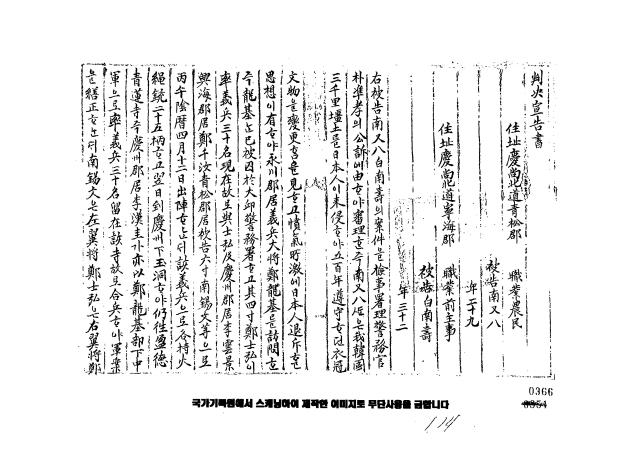 判決宣告書
住址慶尙北道青松郡 職業農民
被告南又八
年二十九
住址慶尙北道寧海郡 職業前主事
被告白南壽
年三十二
右被告南又八白南壽의案件을檢事署理警務官
朴準孝의公訴에由ᄒᆞ야審理ᄒᆞ니南又八段은我韓國
三千里壃土을日本人이來侵ᄒᆞ야五百年遵守ᄒᆞ던衣冠
文物을變更홈을見ᄒᆞ고憤氣所激에日本人退斥ᄒᆞᆯ
思想이有ᄒᆞ야永川郡居義兵大將鄭龍基을訪問ᄒᆞᆫ
즉龍基ᄂᆞᆫ已被囚於大邱警務署ᄒᆞ고其四寸鄭士弘이
率義兵三十名現在故로與士弘及慶州郡居李雲景
興海郡居鄭千汝青松郡居被告六寸南錫文等으로
丙午陰曆四月十二日出陣ᄒᆞᄂᆞᆫᄃᆡ該義兵으로各持火
繩銃二十五柄ᄒᆞ고翌日到慶州下玉洞ᄒᆞ야仍往盈德
青蓮寺ᄒᆞᆫ즉慶州郡居李漢圭가亦以鄭龍基部下中
軍으로率義兵三十名留在該寺故로合兵ᄒᆞ야軍案
을繕正ᄒᆞᄂᆞᆫᄃᆡ南錫文은左翼將鄭士弘은右翼將鄭
0366
0354
국가기록원에서 스캐닝하여 제작한 이미지로 무단사용을 금합니다